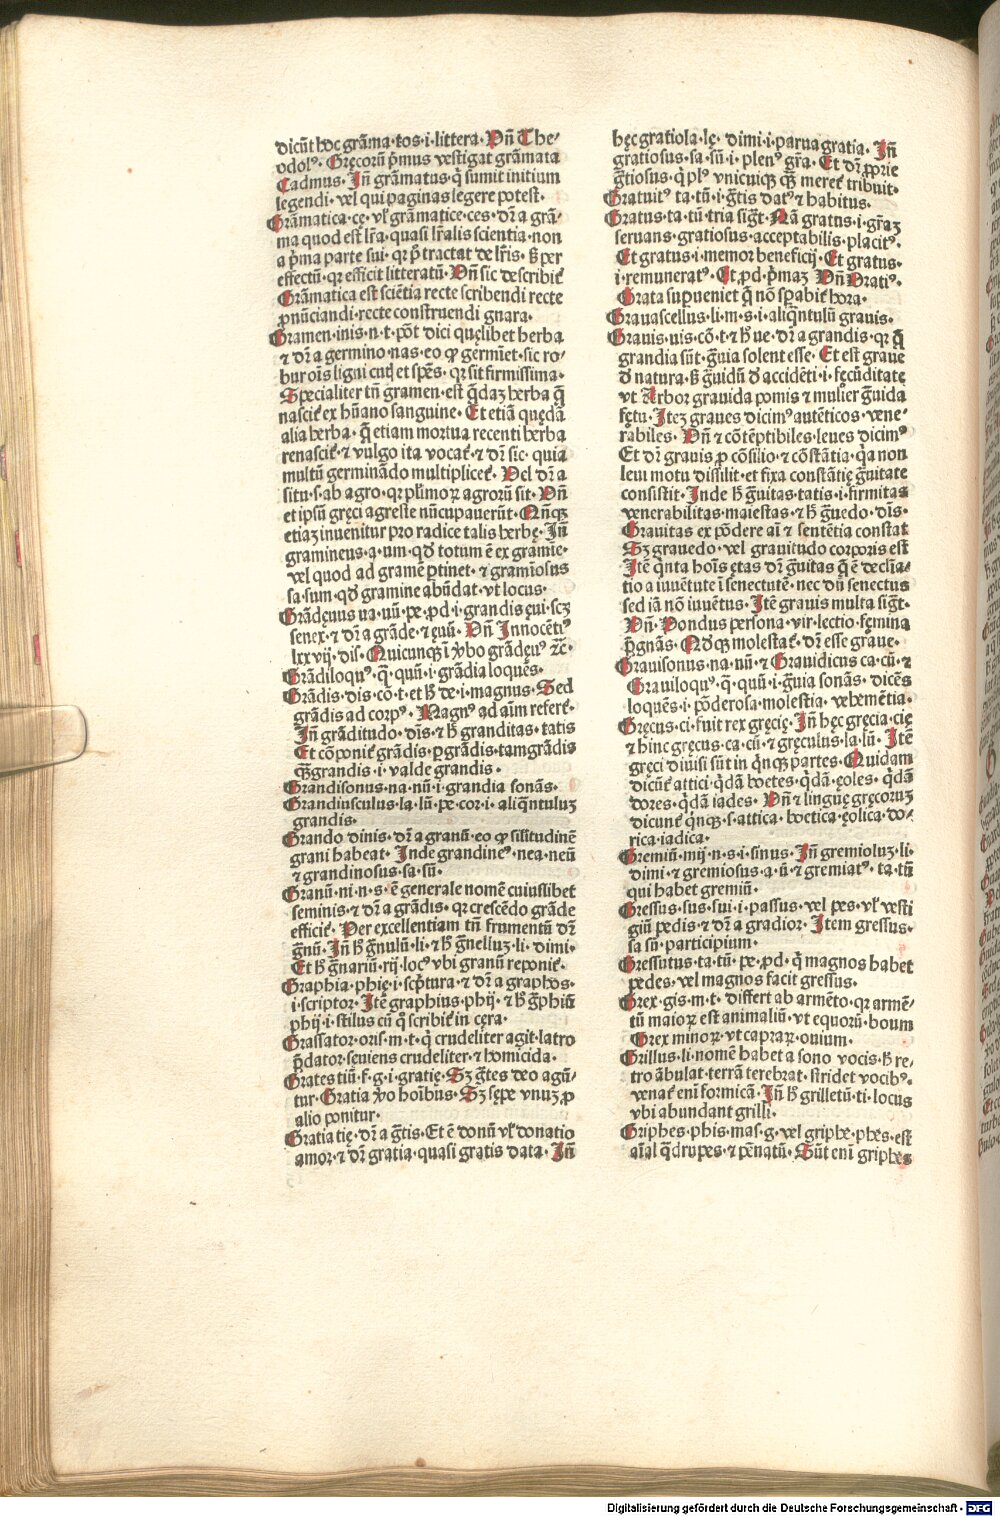 dicūt hoc grāma·tos·i·littera·Vn̄ The⸗
odolꝰ·Gręcorū p̄mus vestigat grāmata
Cadmus·Jn̄ grāmatus·q̇ sumit initium
legendi·vel qui paginas legere potest·
Grāmatica·cę·vl̓ grāmatice·ces·dr̄ a grā⸗
ma quod est lr̄a·quasi lr̄alis scientia·non
a p̄ma parte sui·qr p̄ tractat de lr̄is·ß per
effectū·qr efficit litteratū·Vn̄ sic describit̄
Grāmatica est sciētia recte scribendi recte
ꝓnūciandi·recte construendi gnara·
Gramen·inis·n·t·pōt dici quęlibet herba
⁊ dr̄ a germino·nas·eo ꝙ germīet·sic ro⸗
bur oīs ligni cuꝰ et spēs·qr sit firmissima·
Specialiter tn̄ gramen·est q̄daꝫ herba q̄
nascit̄ ex hūano sanguine·Et etiā quędā
alia herba·q̄ etiam mortua recenti herba
renascit̄·⁊ vulgo ita vocat̄·⁊ dr̄ sic·quia
multū germinādo multiplicet̄·Vel dr̄ a
situ·s·ab agro·qr pl̓imoꝝ agrorū sit·Vn̄
et ipsū gręci agreste nūcupauerūt·Nūqꝫ
etiaꝫ inuenitur pro radice talis herbę·Jn̄
gramineus·a·um·qđ totum ē ex gramīe·
vel quod ad gramē ꝑtinet·⁊ gramīosus
sa·sum·qđ gramine abūdat·vt locus·
Grādęuus ua·uū·pe·ꝓd·i·grandis ęui·scꝫ
senex·⁊ dr̄ a grāde·⁊ ęuū·Vn̄ Jnnocētiꝰ
lxxvij·dis·Quicunqꝫ ī v̓bo grādęuꝰ ⁊c̄·
Grādiloquꝰ·q̄·quū·i·grādia loquēs·
Grādis·dis·cō·t·et ħ de·i·magnus·Sed
grādis ad corpꝰ·Magnꝰ ad aīm refert̄·
Jn̄ grāditudo·dīs·⁊ ħ granditas·tatis
Et cōponit̄ grādis·ꝑgrādis·tamgrādis
qꝫgrandis·i·valde grandis·
Grandisonus·na·nū·i·grandia sonās·
Grandiusculus·la·lū·pe·cor·i·aliq̄ntuluꝫ
grandis·
Grando dinis·dr̄ a granū·eo ꝙ sil̓itudinē
grani habeat·Jnde grandineꝰ·nea·neū
⁊ grandinosus·sa·sū·
Granū·ni·n·s·ē generale nomē cuiuslibet
seminis·⁊ dr̄ a grādis·qr crescēdo grāde
efficit̄·Per excellentiam tn̄ frumentū dr̄
g̊nū·Jn̄ ħ g̊nulū·li·⁊ ħ g̊nelluꝫ·li·dimi·
Et ħ g̊nariū·rij·locꝰ vbi granū reponit̄·
Graphia·phię·i·sc̓ptura·⁊ dr̄ a graphos·
i·scriptor·Jtē graphius·phij·⁊ ħ g̊phiū
phij·i·stilus cū q̊ scribit̄ in cęra·
Grassator·oris·m·t·q̇ crudeliter agit·latro
p̄dator·sęuiens crudeliter·⁊ homicida·
Grates tiū·f·g·i·gratię·Sꝫ g̊tes deo agū⸗
tur·Gratia v̓o hoībus·Sꝫ sępe vnuꝫ ꝓ
alio ponitur·
Gratia tię·dr̄ a g̊tis·Et ē donū vl̓ donatio
amor·⁊ dr̄ gratia·quasi gratis data·Jn̄
hęc gratiola·lę·dimi·i·parua gratia·Jn̄
gratiosus·sa·sū·i·plenꝰ gr̄a·Et dr̄ ꝓprie
g̊tiosus·q̇ plꝰ vnicuiqꝫ qꝫ meret̄ tribuit·
Gratuitꝰ ta·tū·i·g̊tis datꝰ ⁊ habitus·
Gratus·ta·tū·tria sigt̄·Nā gratus·i·gr̄aꝫ
seruans·gratiosus·acceptabilis·placitꝰ·
Et gratus·i·memor beneficij·Et gratus·
i·remuneratꝰ·Et ꝓd·p̄maꝫ Vn̄ Oratiꝰ·
Grata suꝑueniet q̄ nō sꝑabit̄ hora·
Grauascellus·li·m·s·i·aliq̄ntulū grauis·
Grauis·uis·cō·t·⁊ ħ ue·dr̄ a grandis·qr q̄
grandia sūt·g̊uia solent esse·Et est graue
đ natura·ß g̊uidū đ accidēti·i·fęcūditate
vt Arbor grauida pomis ⁊ mulier g̊uida
fętu·Jteꝫ graues dicimꝰ autēticos·vene⸗
rabiles·Vn̄ ⁊ cōtēptibiles·leues dicimꝰ
Et dr̄ grauis ꝓ cōsilio·⁊ cōstātia·q̇a non
leui motu dissilit·et fixa constātię g̊uitate
consistit·Jnde ħ g̊uitas·tatis·i·firmitas
venerabilitas·maiestas·⁊ ħ g̊uedo·dīs·
Grauitas ex pōdere aī ⁊ sentētia constat
Sꝫ grauedo·vel grauitudo corporis est
Jtē q̇nta hoīs ętas dr̄ g̊uitas q̄ ē declīa⸗
tio a iuuētute ī senectutē·nec dū senectus
sed iā nō iuuētus·Jtē grauis multa sigt̄·
Vn̄·Pondus persona·vir·lectio·fęmina
p̄gnās·Qđqꝫ molestat̄·dr̄ esse graue·
Grauisonus·na·nū·⁊ Grauidicus ca·cū·⁊
Grauiloquꝰ·q̄·quū·i·g̊uia sonās·dicēs
loquēs·i·pōderosa·molestia·vehemētia·
Gręcus·ci·fuit rex gręcię·Jn̄ hęc gręcia·cię
⁊ hinc gręcus·ca·cū·⁊ gręculus·la·lū·Jtē
gręci diuisi sūt in q̇nqꝫ partes·Quidam
dicūt̄ attici·q̇dā boetes·q̇dā·ęoles·q̇dā
dores·q̇dā iades·Vn̄ ⁊ linguę gręcoruꝫ
dicunt̄ q̇nqꝫ·s·attica·boetica·ęolica·do⸗
rica·iadica·
Gremiū·mij·n·s·i·sinus·Jn̄ gremioluꝫ·li·
dimi·⁊ gremiosus·a·ū·⁊ gremiatꝰ·ta·tū
qui habet gremiū·
Gressus·sus·sui·i·passus·vel pes·vl̓ vesti
giū pedis·⁊ dr̄ a gradior·Jtem gressus·
sa sū·participium·
Gressutus·ta·tū·pe·ꝓd·q̇ magnos habet
pedes·vel magnos facit gressus·
Grex·gis·m·t·differt ab armēto·qr armē⸗
tū maioꝝ est animaliū·vt equorū·boum
Grex minoꝝ·vt capraꝝ·ouium·
Grillus·li·nomē habet a sono vocis·ħ re⸗
tro ābulat·terrā terebrat·stridet vocibꝰ·
venat̄ enī formicā·Jn̄ ħ grilletū·ti·locus
vbi abundant grilli·
Griphes·phis·mas·g·vel griphe·phes·est
aīal q̄drupes·⁊ pēnatū·Sūt enī griphes
Digitalisierung gefördert durch die Deutsche Forschungsgemeinschaft - DFG